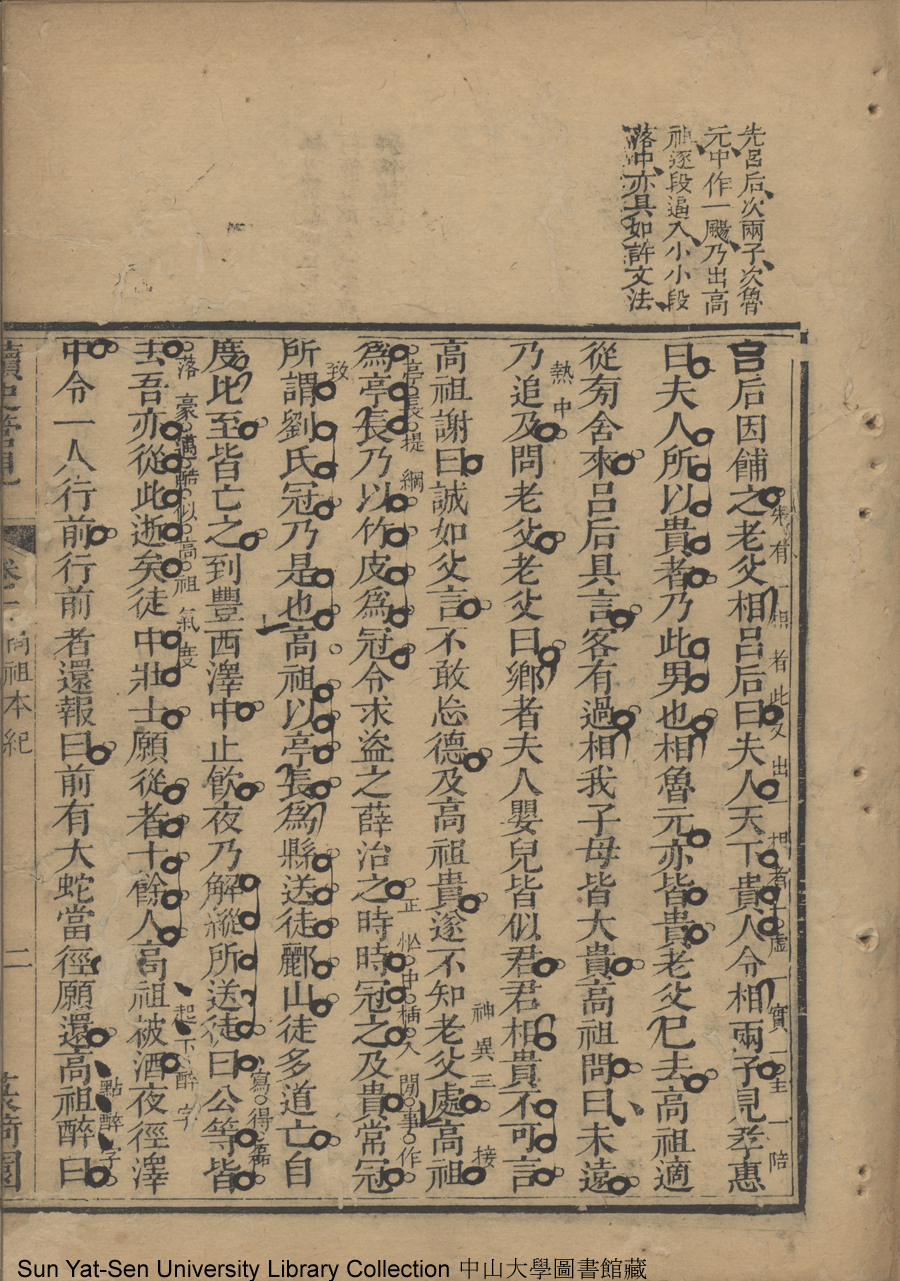 先呂后次兩子次魯
元中作一颺乃出高
祖逐段逼入小小段
落中亦具如許文法
呂后因餔之老父相呂后曰夫人天下貴人令相兩子見孝惠
曰夫人所以貴者乃此男也相魯元亦皆貴老父已去高祖適
從旁舍來呂后具言客有過相我子母皆大貴高祖問曰未遠
熱中
乃追及問老父老父曰鄉者夫人嬰兒皆似君君相貴不可言
神異三 接
高祖謝曰誠如父言不敢忘德及高祖貴遂不知老父處高祖
亭長提綱 正 中插入閒事作
為亭長乃以竹皮為冠令求盜之薛治之時時冠之及貴常冠
致
所謂劉氏冠乃是也高祖以亭長為縣送徒酈山徒多道亡自
寫得磊
度比至皆亡之到豐西澤中止飲夜乃解縱所送徒曰公等皆
落豪邁酷似高祖氣度 起下醉字
去吾亦從此逝矣徒中壯士願從者十餘人高祖被酒夜徑澤
點醉字
中令一人行前行前者還報曰前有大蛇當徑願還高祖醉曰
高祖本紀 二
Sun Yat-Sen University Library Collection 中山大學圖書館藏